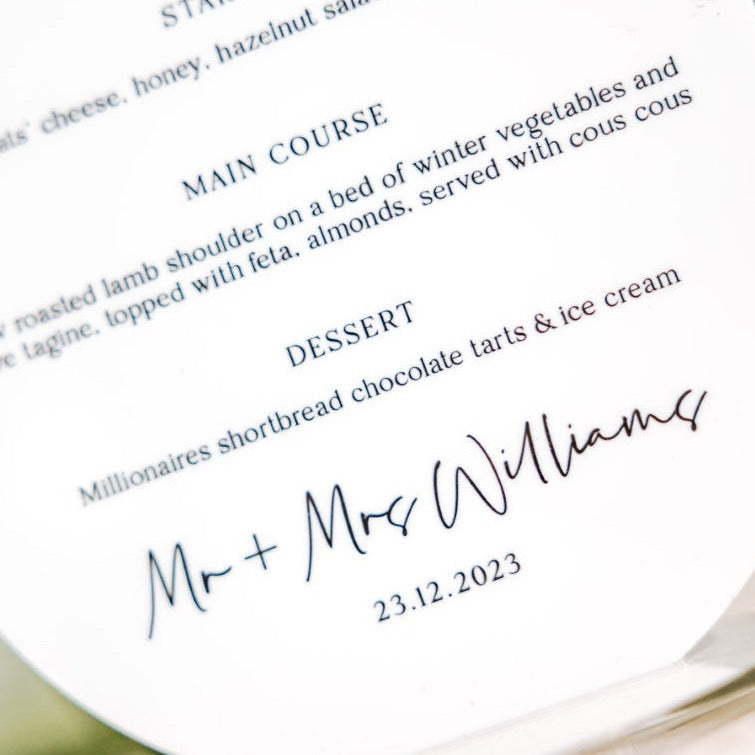 STAR
cheese, honey, hazelnut sala
MAIN COURSE
roasted lamb shoulder on a bed of winter vegetables and
tagine, topped with feta, almonds, served with cous cous
DESSERT
Millionaires shortbread chocolate tarts & ice cream
Mr + Mrs Williams
23.12.2023